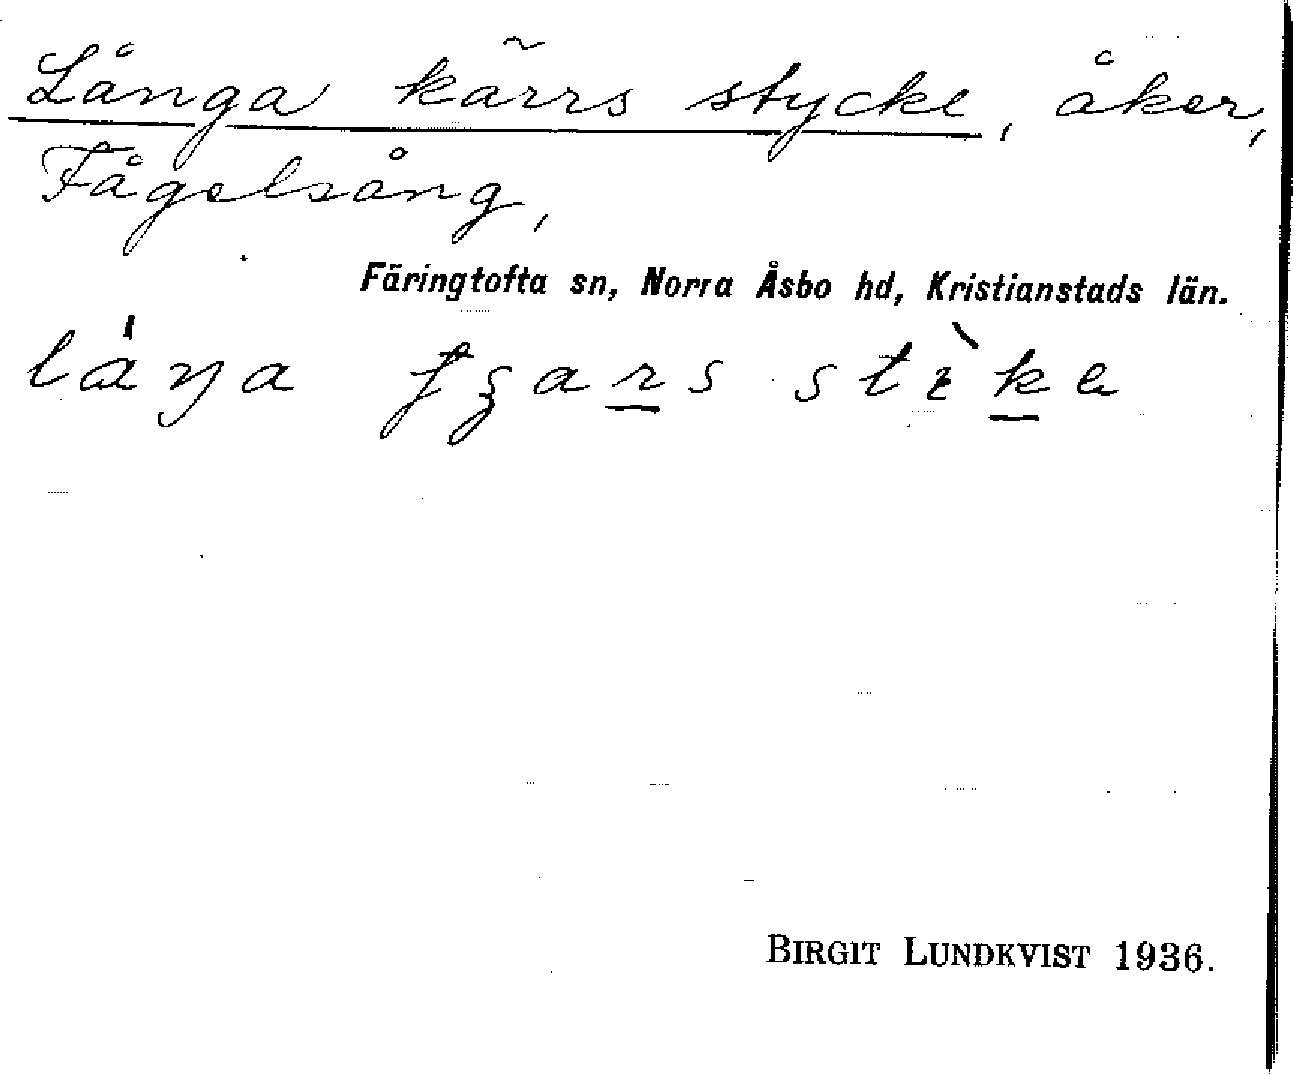 Långa kärrs stycke, åker,
Fågelsång,
Färingtofta sn, Norra Åsbo hd, Kristianstads län.
BIRGIT LUNDKVIST 1936.